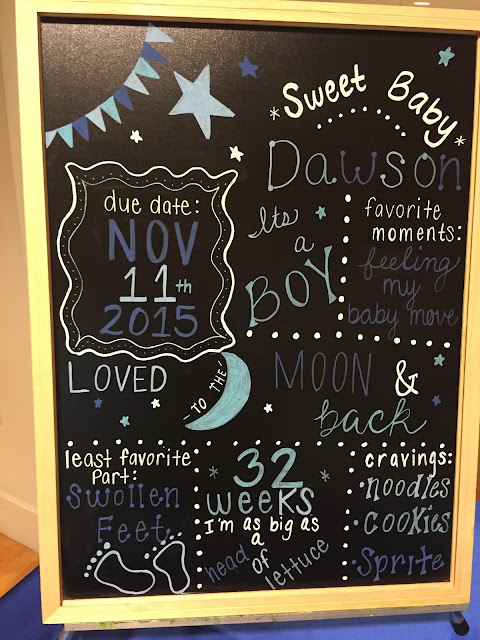 Sweet Baby
Dawson
due date:
NOV
11th
2015
Its
a
BOY
favorite
moments:
feeling
my
baby move
LOVED
- TO THE -
MOON &
back
least favorite
part:
Swollen
Feet
32
weeks
I'm as big as
a
head of
lettuce
cravings:
•noodles
•cookies
•Sprite